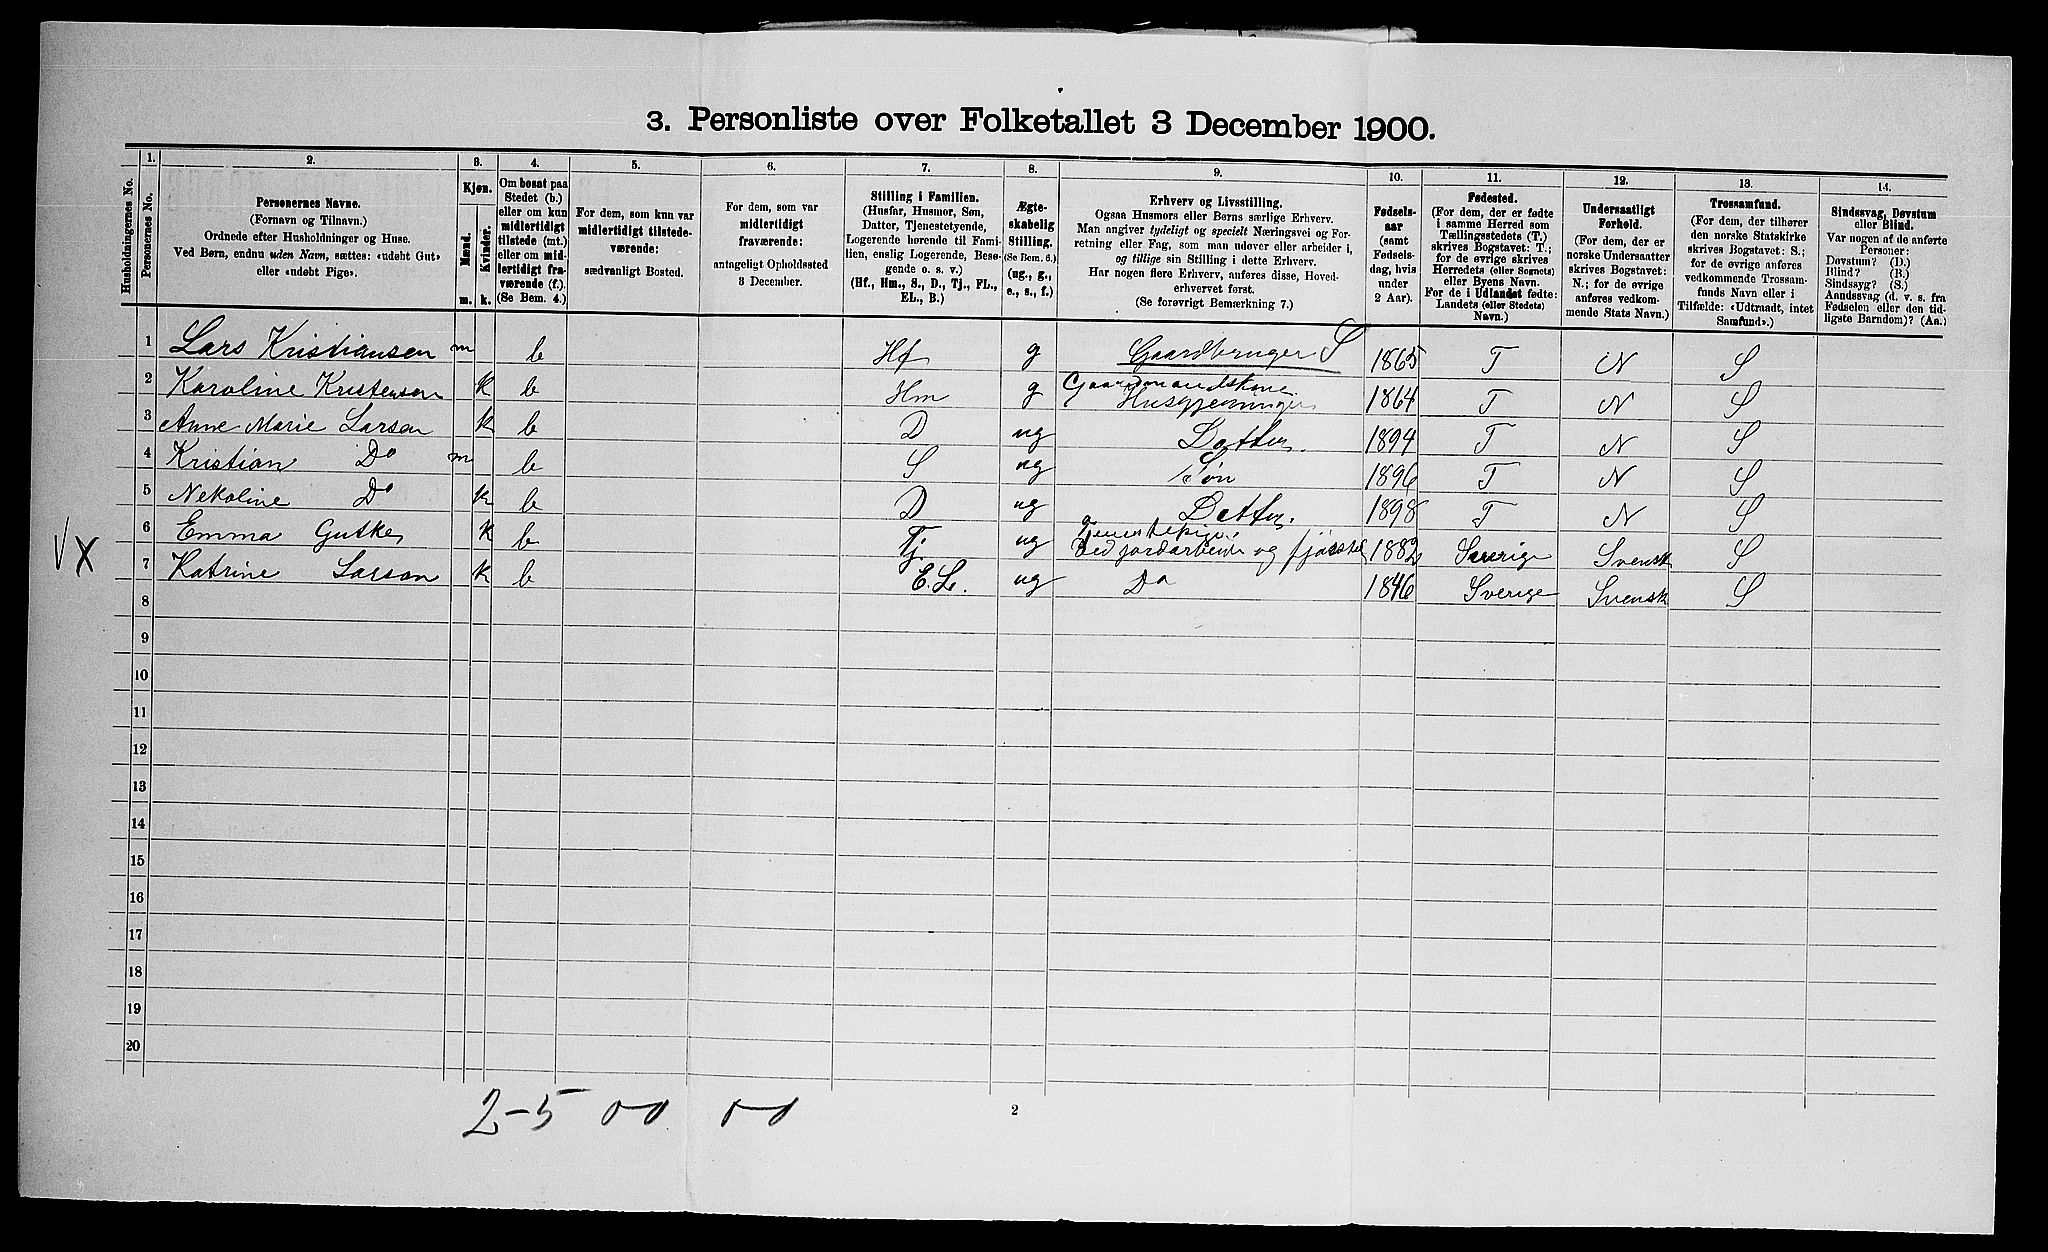 3. Personliste over Folketallet 3 December 1900.
Husholdningernes No.
1.
Personernes No.
2.
Personernes Navne.
(Fornavn og Tilnavn.)
Ordnede efter Husholdninger og Huse.
Ved Børn, endnu uden Navn, sættes: «udøbt Gut»
eller «udøbt Pige».
3.
Kjøn.
Mænd.
Kvinder.
m.
k.
4.
Om bosat paa
Stedet (b.)
eller om kun
midlertidigt
tilstede (mt.)
eller om mid-
lertidigt fra-
værende (f.).
(Se Bem. 4.)
5.
For dem, som kun var
midlertidigt tilstede-
værende:
sædvanligt Bosted.
6.
For dem, som var
midlertidigt
fraværende:
antageligt Opholdssted
3 December.
7.
Stilling i Familien.
(Husfar, Husmor, Søn,
Datter, Tjenestetyende,
Logerende hørende til Fami-
lien, enslig Logerende, Besø-
gende o. s. v.)
(Hf., Hm., S., D., Tj., FL.,
EL., B.)
8.
Ægte-
skabelig
Stilling.
(Se Bem. 6.)
(ug., g.,
e., s., f.)
9.
Erhverv og Livsstilling.
Ogsaa Husmors eller Børns særlige Erhverv.
Man angiver tydeligt og specielt Næringsvei og For-
retning eller Fag, som man udøver eller arbeider i,
og tillige sin Stilling i dette Erhverv.
Har nogen flere Erhverv, anføres disse, Hoved-
erhvervet først.
(Se forøvrigt Bemærkning 7.)
10.
Fødsels-
aar
(samt
Fødsels-
dag, hvis
under
2 Aar).
11.
Fødested.
(For dem, der er fødte
i samme Herred som
Tællingsstedets (T.)
skrives Bogstavet: T.;
for de øvrige skrives
Herredets (eller Sognets)
eller Byens Navn.
For de i Udlandet fødte:
Landets (eller Stedets)
Navn.)
12.
Undersaatligt
Forhold.
(For dem, der er
norske Undersaatter
skrives Bogstavet:
N.; for de øvrige
anføres vedkom-
mende Stats Navn.)
13.
Trossamfund.
(For dem, der tilhører
den norske Statskirke
skrives Bogstavet: S.;
for de øvrige anføres
vedkommende Trossam-
funds Navn eller i
Tilfælde: «Udtraadt, intet
Samfund».)
14.
Sindssvag, Døvstum
eller Blind.
Var nogen af de anførte
Personer:
Døvstum? (D.)
Blind? (B.)
Sindssyg? (S.)
Aandssvag (d. v. s. fra
Fødselen eller den tid-
ligste Barndom)? (Aa.)
1 Lars Kristiansen m b Hf g Gaardbruger S 1865 T N S
2 Karoline Kristensen k b Hm g Gaardmandskone Husgjerninger 1864 T N S
3 Anne Marie Larsen k b D ug Datter. 1894 T N S
4 Kristian Do m b S ug Søn 1896 T N S
5 Nekoline Do k b D ug Datter. 1898 T N S
6 Emma Gutke k b Tj ug Tjenestepige ved jordarbeide og fjøsstel 1882 Sverige Svensk S
7 Katrine Larson k b E.L. ug Do 1846 Sverige Svensk S
8
9
10
11
12
13
14
15
16
17
18
19
20
V X
2-5 00 00
2